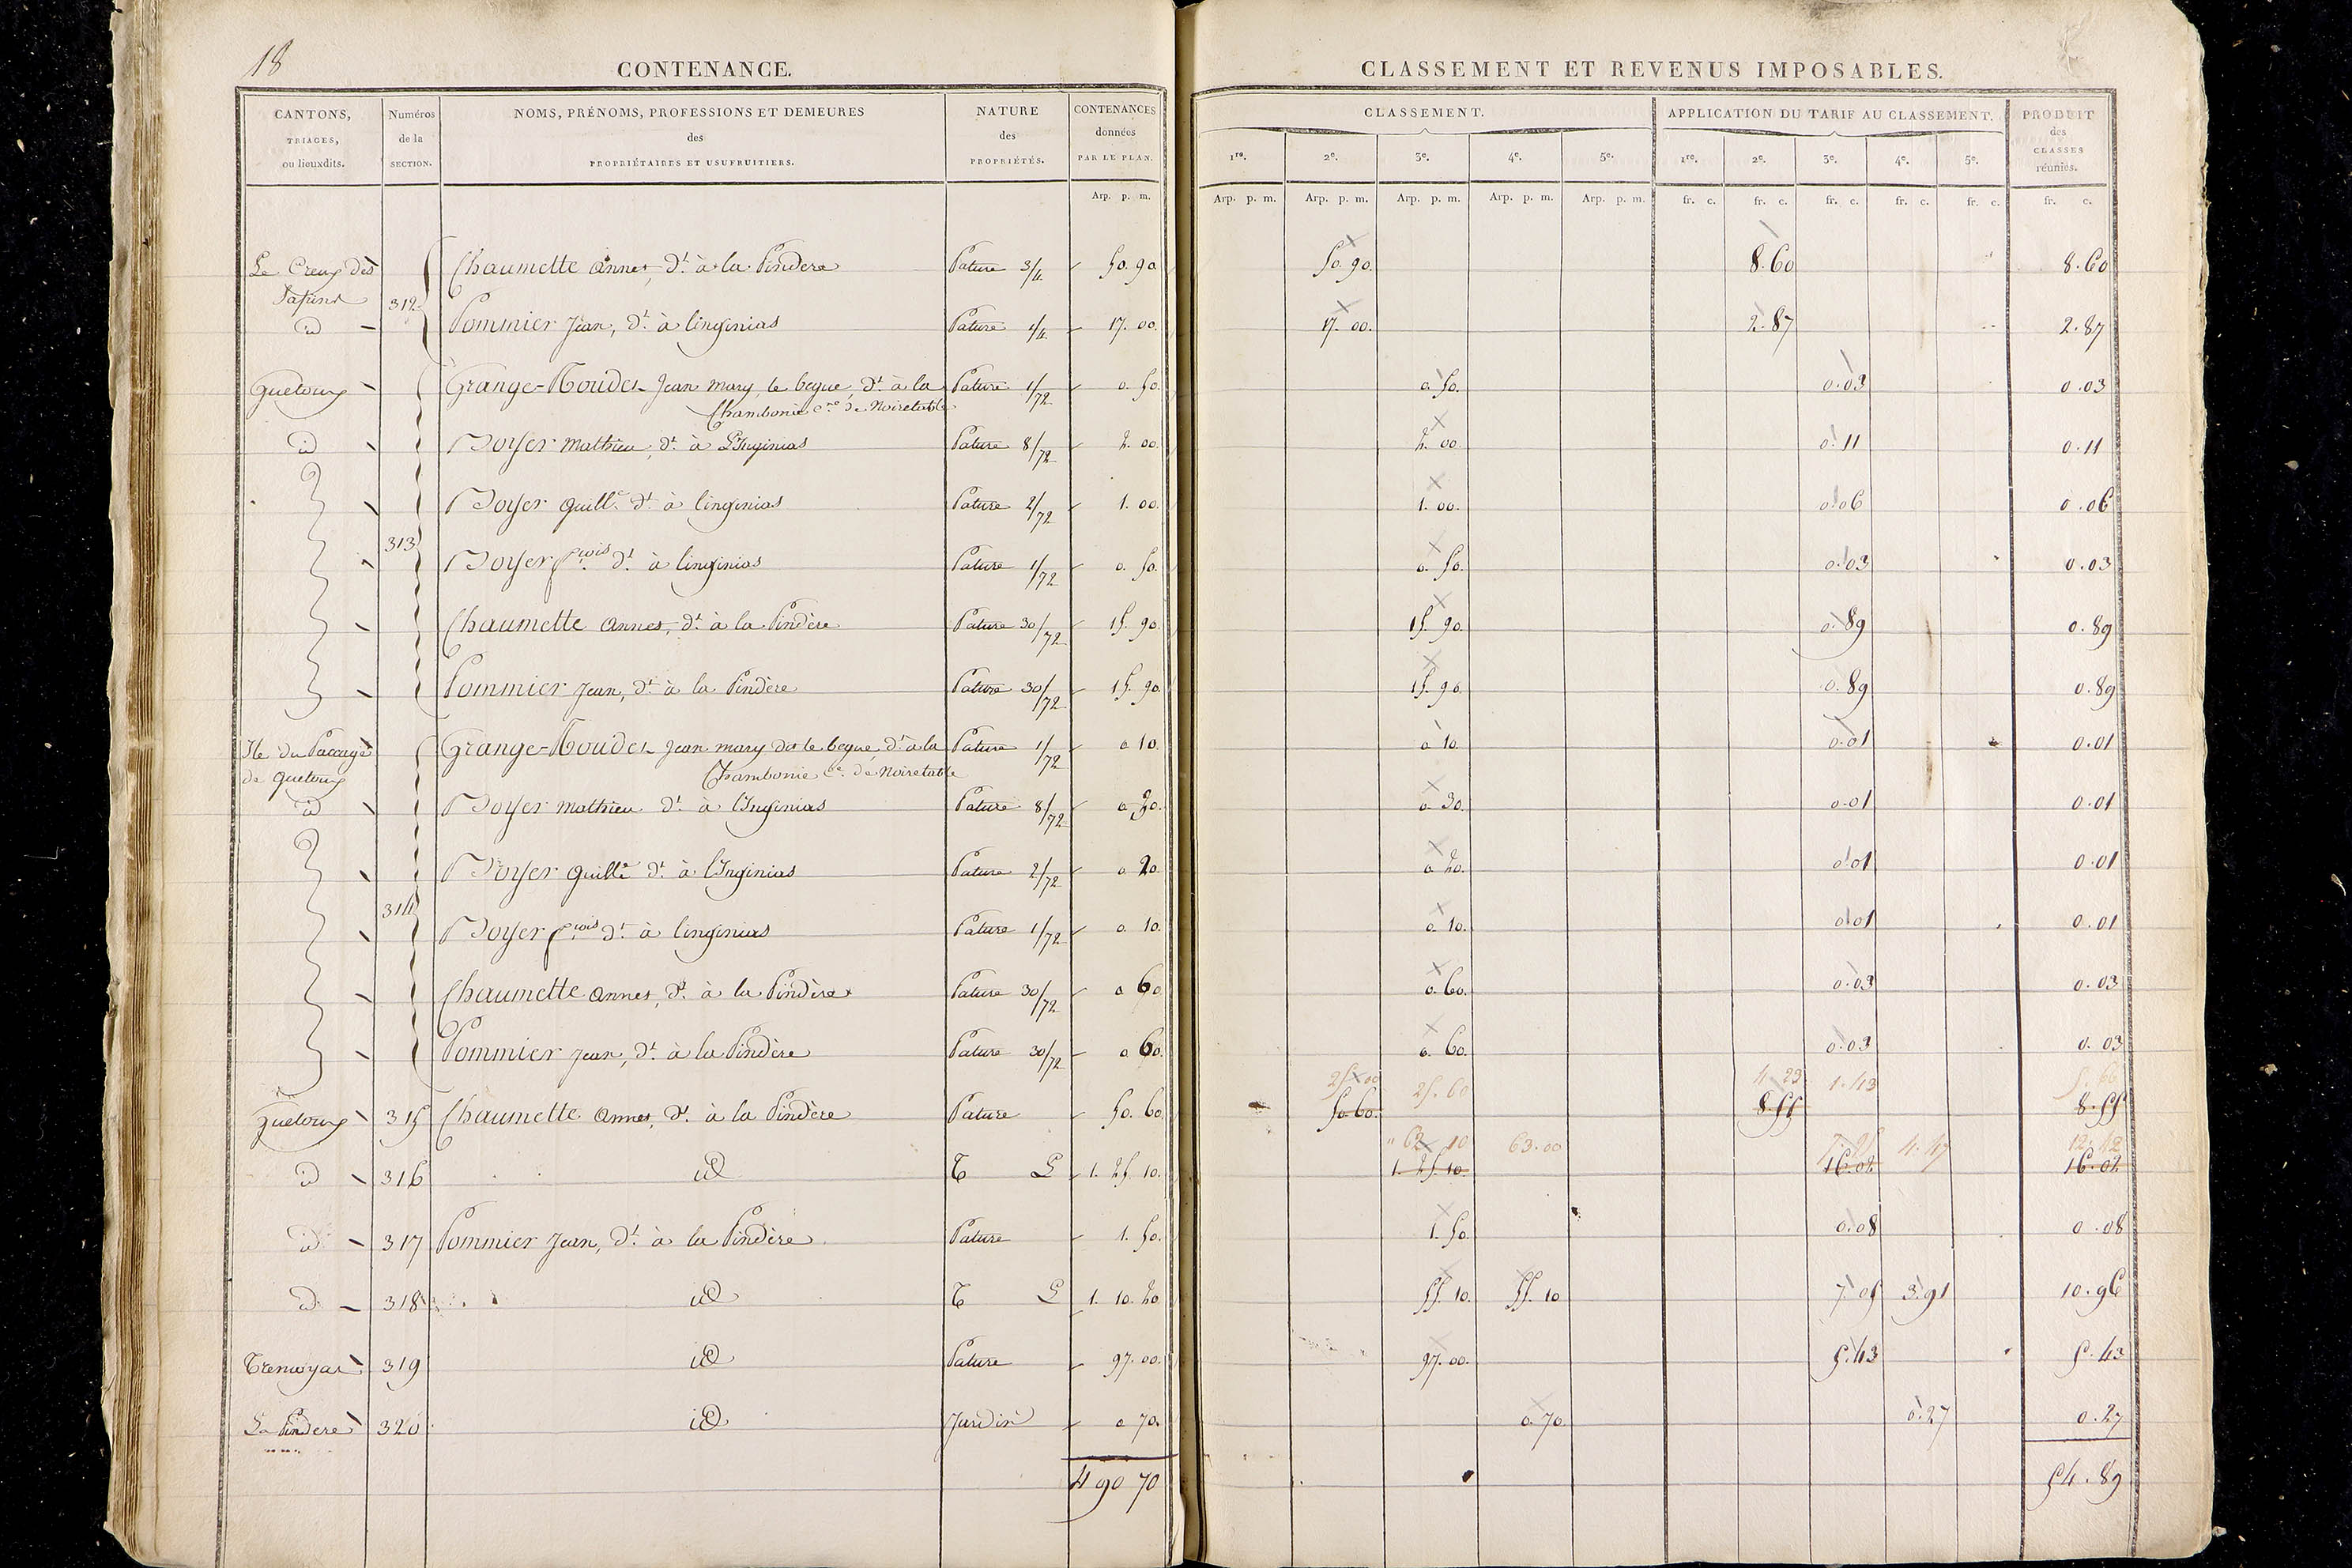 18
CONTENANCE.
CANTONS, TRIAGES, ou lieuxdits.
Numéros de la SECTION.
NOMS, PRÉNOMS, PROFESSIONS ET DEMEURES des PROPRIÉTAIRES ET USUFRUITIERS.
NATURE des PROPRIÉTÉS.
CONTENANCES données PAR LE PLAN.
Arp. p. m.
CLASSEMENT ET REVENUS IMPOSABLES.
CLASSEMENT.
1re. 2e. 3e. 4e. 5e.
Arp. p. m. Arp. p. m. Arp. p. m. Arp. p. m. Arp. p. m.
APPLICATION DU TARIF AU CLASSEMENT.
1re. 2e. 3e. 4e. 5e.
fr. c. fr. c. fr. c. fr. c. fr. c.
PRODUIT des CLASSES réunies.
fr. c.
Le Creux des 312 Chaumette Annet, dt. à la Pindere Pature 3/4 50. 90. 50. 90. 8.60 8.60
id Pommier Jean, dt. à linginias Pature 1/4 17. 00. 17. 00. 2.87 2.87
guetoux 313 Grange-Roudel Jean mary, le begue, dt. à la Pature 1/72 0. 50. 0. 50. 0.03 0.03
Chambonie cne. de Noiretable
id Boyer mathieu, dt. à L'Inginias Pature 8/72 2. 00. 2. 00. 0.11 0.11
Boyer Guille. dt. à linginias Pature 2/72 1. 00. 1. 00. 0.06 0.06
Boyer fcois dt. à linginias Pature 1/72 0. 50. 0. 50. 0.03 0.03
Chaumette Annet, dt. à la Pindère Pature 30/72 15. 90. 15. 90. 0.89 0.89
Pommier Jean, dt. à la Pindère Pature 30/72 15. 90. 15. 90. 0.89 0.89
Ile du Paccage de guetoux 314 Grange-Roudel Jean mary dit le begue, dt. à la Pature 1/72 0 10. 0 10. 0.01 0.01
Chambonie ce. de Noiretable
id Boyer mathieu dt. à l'Inginias Pature 8/72 0 30. 0. 30. 0.01 0.01
Boyer guille dt. à l'Inginias Pature 2/72 0 20. 0 20. 0.01 0.01
Boyer fcois dt. à linginias Pature 1/72 0. 10. 0. 10. 0.01 0.01
Chaumette Annet, dt. à la Pindère Pature 30/72 0 60 0. 60. 0.03 0.03
Pommier Jean, dt. à la Pindère Pature 30/72 0 60. 0. 60. 0.03 0.03
25. 00 25. 60 4.23 1.43 5.66
guetoux 315 Chaumette Annet, dt. à la Pindère Pature 50. 60 50. 60. 8.55 8.55
" 62 10 63.00 4.47 12.42
id 316 id T L 1. 25. 10. 1. 25. 10. 16.02 16.02
id 317 Pommier Jean, dt. à la Pindère Pature 1. 50. 1. 50. 0.08 0.08
id 318 id T L 1. 10. 20 55. 10. 55. 10 7.05 3.91 10.96
319 id Pature 97. 00. 97. 00. 5.43 5.43
La Pindere 320 id Jardin 0 70. 0. 70. 0.27 0.27
4 90 70 54.89